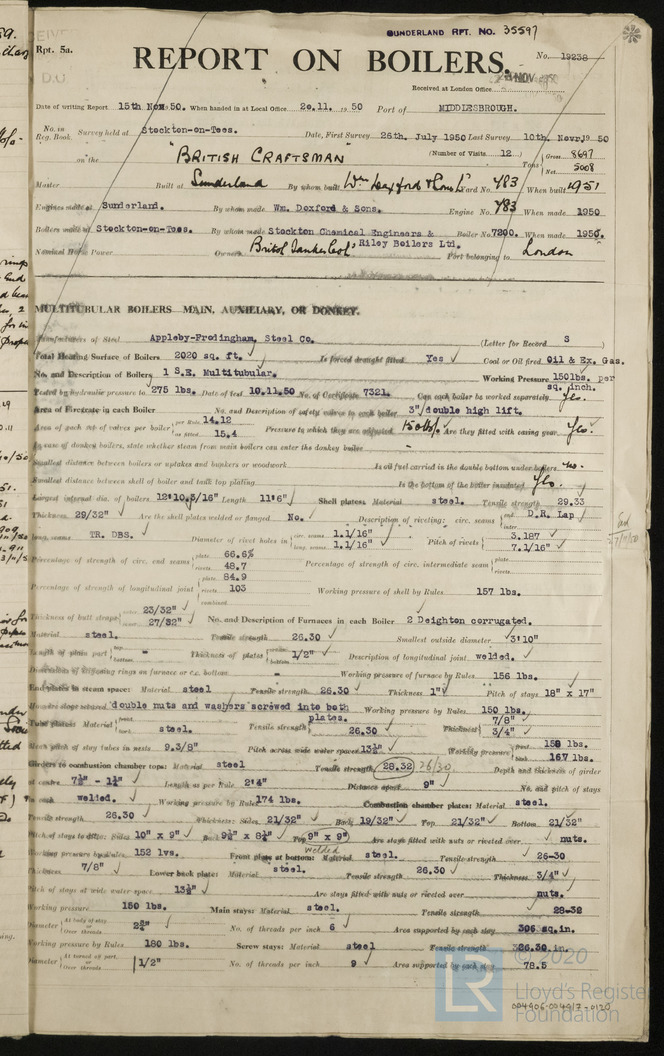 SUNDERLAND RPT. NO. 35597
Rpt. 5a.
REPORT ON BOILERS.
No. 19238
Received at London Office
Date of writing Report 15th Nov 50. When handed in at Local Office 20.11. 1950 Port of MIDDLESBROUGH.
No. in Reg. Book Survey held at Stockton-on-Tees. Date, First Survey 26th. July 1950 Last Survey 10th. Novr. 19 50
on the "BRITISH CRAFTSMAN" (Number of Visits 12) Tons Gross 8697 Net 5008
Master Built at Sunderland By whom built Wm Doxford & Sons Ld Yard No. 783 When built 1951
Engines made at Sunderland. By whom made Wm. Doxford & Sons. Engine No. 783 When made 1950
Boilers made at Stockton-on-Tees. By whom made Stockton Chemical Engineers & Riley Boilers Ltd. Boiler No. 7200. When made 1950.
Nominal Horse Power Owners Port belonging to London
MULTITUBULAR BOILERS MAIN, AUXILIARY, OR DONKEY.
Manufacturers of Steel Appleby-Frodingham, Steel Co. (Letter for Record S )
Total Heating Surface of Boilers 2020 sq. ft. Is forced draught fitted Yes Coal or Oil fired Oil & Ex. Gas.
No. and Description of Boilers 1 S.E. Multitubular. Working Pressure 150lbs. per sq. inch.
Tested by hydraulic pressure to 275 lbs. Date of test 10.11.50 No. of Certificate 7321. Can each boiler be worked separately Yes.
Area of Firegrate in each Boiler No. and Description of safety valves to each boiler 3" double high lift.
Area of each set of valves per boiler per Rule 14.12 as fitted 15.4 Pressure to which they are adjusted 150 lbs Are they fitted with easing gear Yes.
In case of donkey boilers, state whether steam from main boilers can enter the donkey boiler
Smallest distance between boilers or uptakes and bunkers or woodwork Is oil fuel carried in the double bottom under boilers No.
Smallest distance between shell of boiler and tank top plating Is the bottom of the boiler insulated Yes.
Largest internal dia. of boilers 12'10.3/16" Length 11'6" Shell plates: Material steel. Tensile strength 29.33
Thickness 29/32" Are the shell plates welded or flanged No. Description of riveting: circ. seams end D.R. Lap inter.
long. seams TR. DBS. Diameter of rivet holes in circ. seams 1.1/16" long. seams 1.1/16" Pitch of rivets 3.187 7.1/16"
Percentage of strength of circ. end seams plate 66.6% rivets 48.7 Percentage of strength of circ. intermediate seam plate rivets
Percentage of strength of longitudinal joint plate 84.9 rivets 103 combined Working pressure of shell by Rules 157 lbs.
Thickness of butt straps outer 23/32" inner 27/32" No. and Description of Furnaces in each Boiler 2 Deighton corrugated.
Material steel. Tensile strength 26.30 Smallest outside diameter 3'10"
Length of plain part top - bottom - Thickness of plates crown bottom 1/2" Description of longitudinal joint welded.
Dimensions of stiffening rings on furnace or c.c. bottom - Working pressure of furnace by Rules 156 lbs.
End plates in steam space: Material steel Tensile strength 26.30 Thickness 1" Pitch of stays 18" X 17"
How are stays secured double nuts and washers screwed into both plates. Working pressure by Rules 150 lbs.
Tube plates: Material front back steel. Tensile strength 26.30 Thickness 7/8" 3/4"
Mean pitch of stay tubes in nests 9.3/8" Pitch across wide water spaces 13½" Working pressure front 158 lbs. back 167 lbs.
Girders to combustion chamber tops: Material steel Tensile strength 28.32 26/30 Depth and thickness of girder
at centre 7½" - 1¼" Length as per Rule 2'4" Distance apart 9" No. and pitch of stays
in each welded. Working pressure by Rules 174 lbs. Combustion chamber plates: Material steel.
Tensile strength 26.30 Thickness: Sides 21/32" Back 19/32" Top 21/32" Bottom 21/32"
Pitch of stays to ditto: Sides 10" X 9" Back 9½" x 8½" Top 9" x 9" welded Are stays fitted with nuts or riveted over nuts.
Working pressure by Rules 152 lvs. Front plate at bottom: Material steel. Tensile strength 26-30
Thickness 7/8" Lower back plate: Material steel. Tensile strength 26.30 Thickness 3/4"
Pitch of stays at wide water space 13½" Are stays fitted with nuts or riveted over nuts.
Working pressure 150 lbs. Main stays: Material steel. Tensile strength 28-32
Diameter At body of stay or Over threads 2¾" No. of threads per inch 6 Area supported by each stay 306 sq.in.
Working pressure by Rules 180 lbs. Screw stays: Material steel Tensile strength 26.30.in.
Diameter At turned off part or Over threads 1/2" No. of threads per inch 9 Area supported by each stay 78.5
© 2020
LR
Lloyd's Register
Foundation
004906-004917-0120